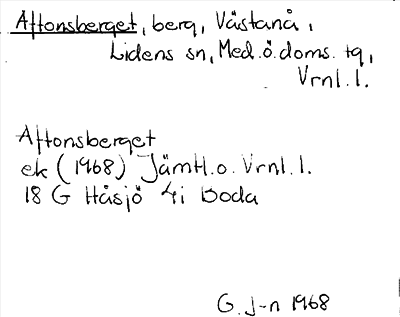 Aftonsberget, berg, Västanå,
Lidens sn, Med.ö.doms. tg,
Vrnl.l.
Aftonsberget
ek (1968) Jämtl.o.Vrnl.l.
18 G Håsjö 4i Boda
G. J-n 1968